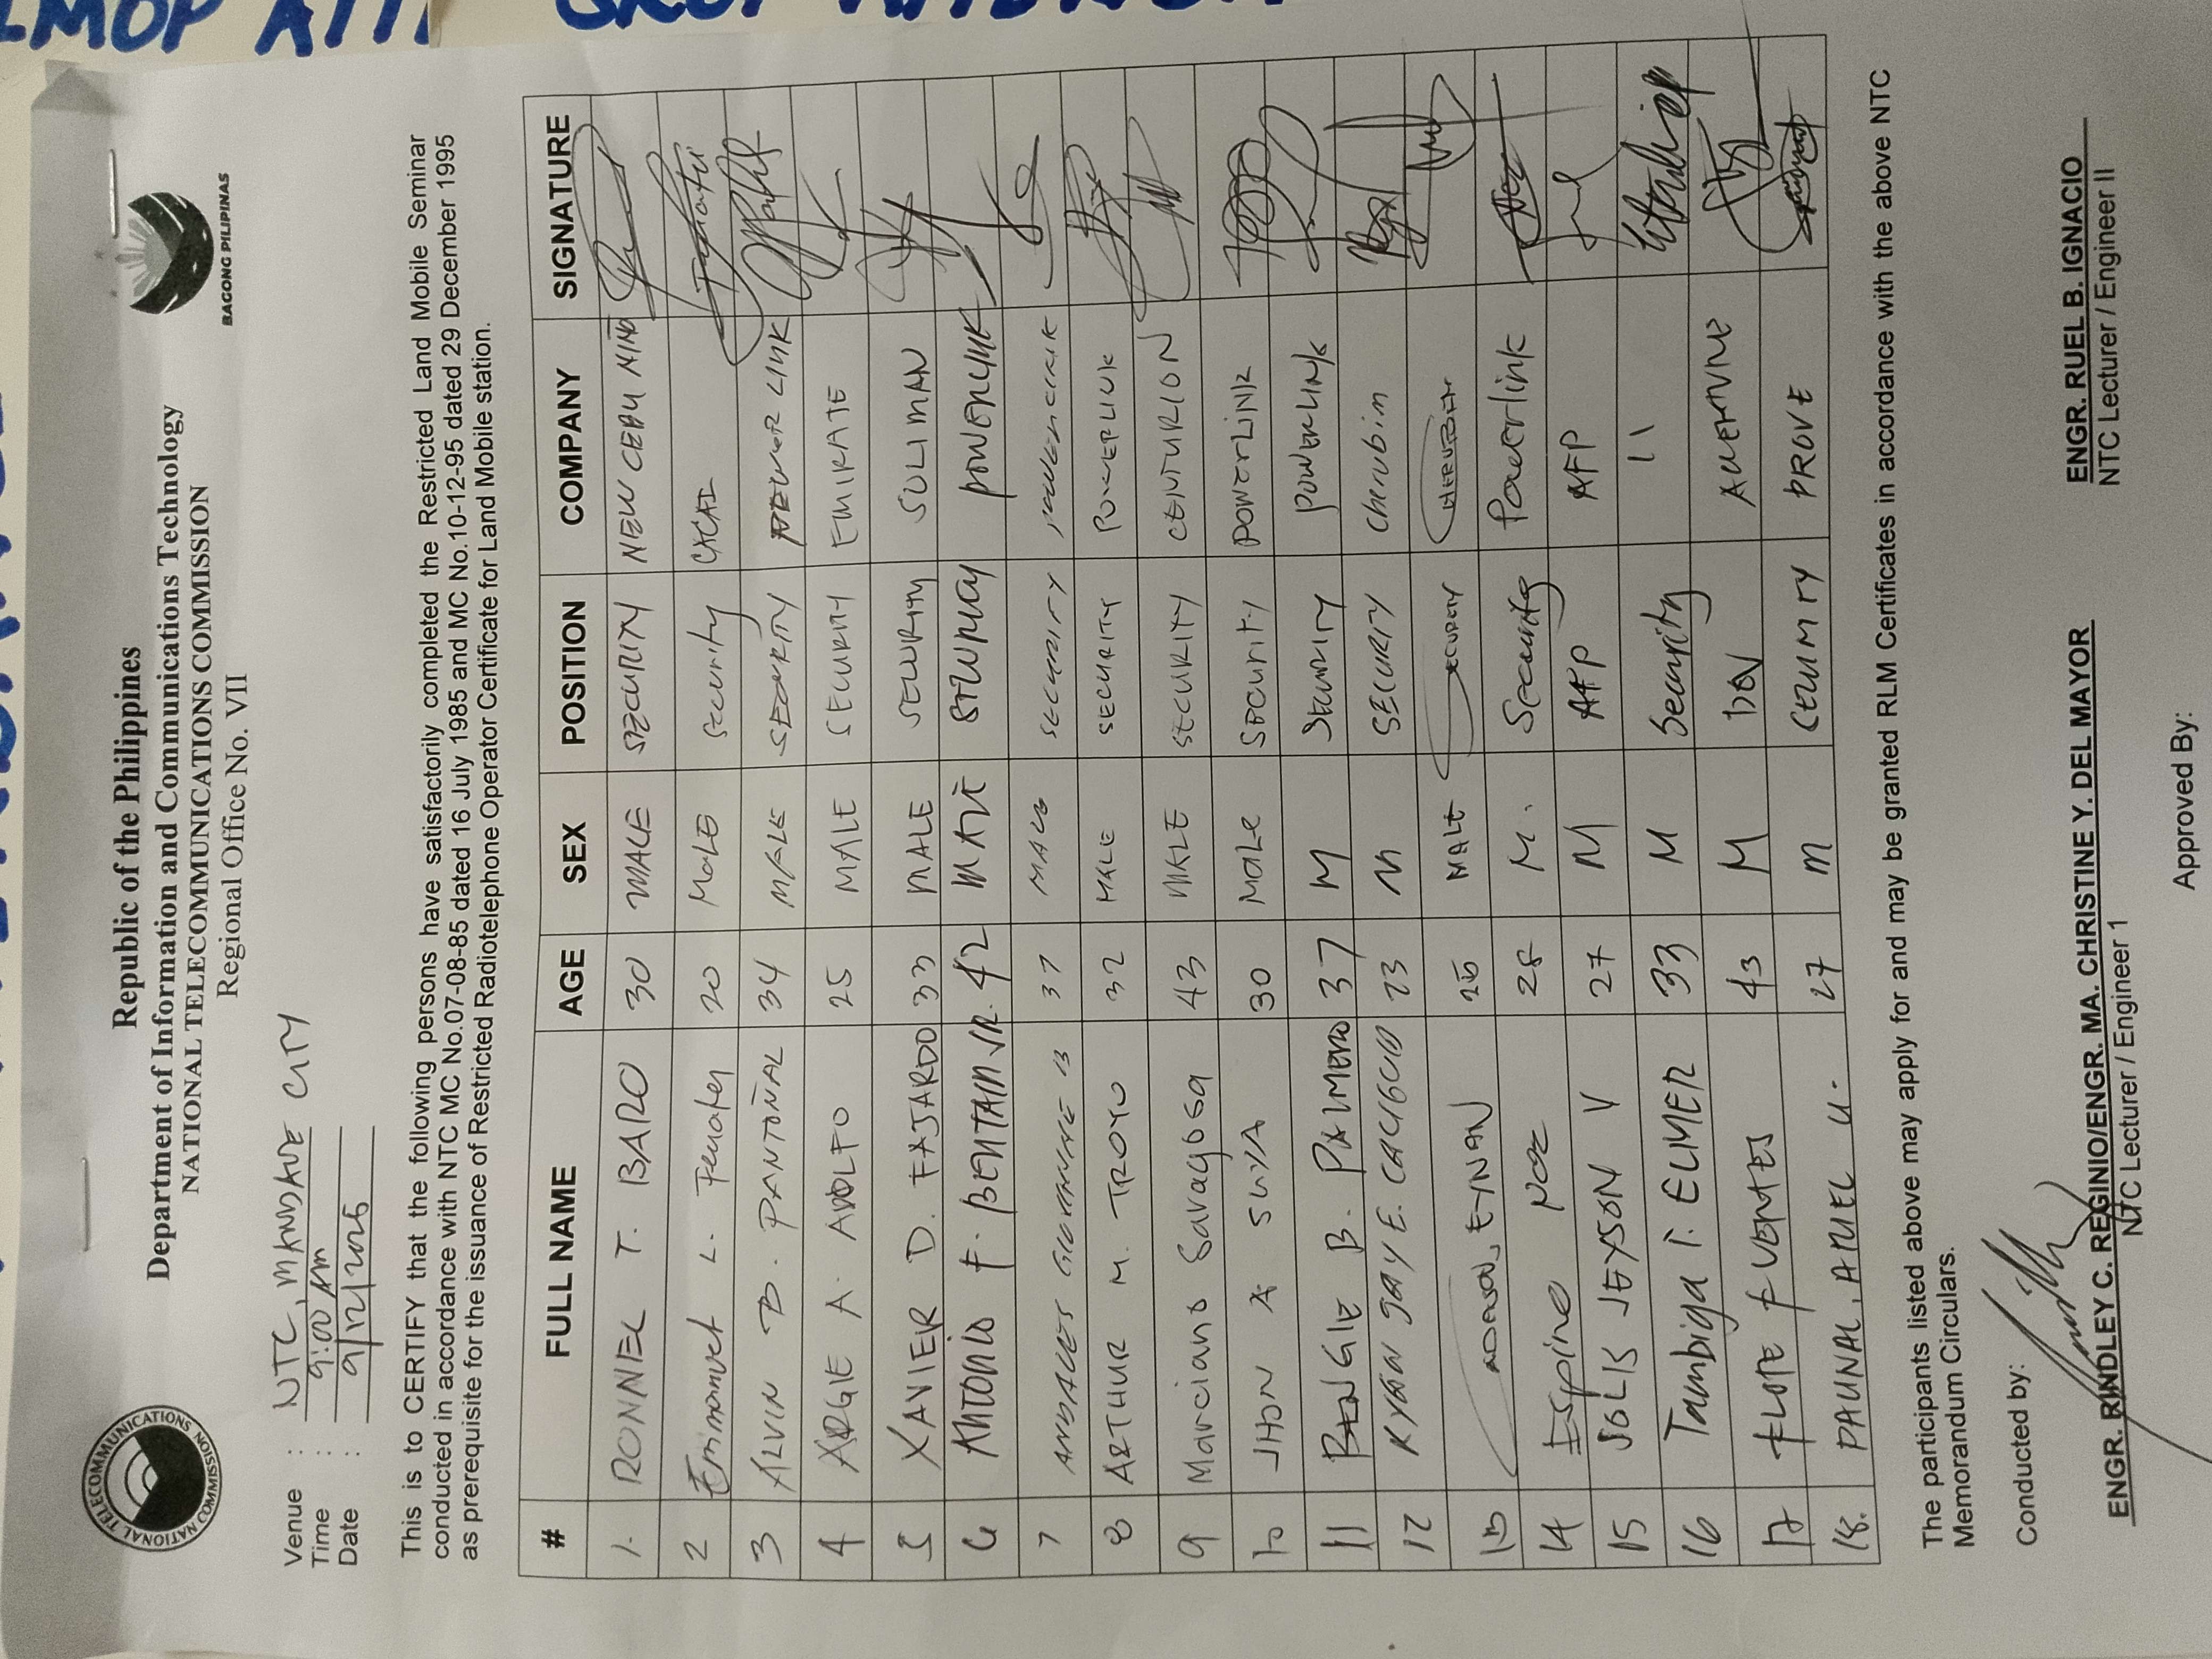 BAGONG PILIPINAS
NATIONAL TELECOMMUNICATIONS COMMISSION
Republic of the Philippines
Department of Information and Communications Technology
NATIONAL TELECOMMUNICATIONS COMMISSION
Regional Office No. VII
Venue : NTC, MANDAUE CITY
Time : 9:00 AM
Date : 9/12/2025
This is to CERTIFY that the following persons have satisfactorily completed the Restricted Land Mobile Seminar
conducted in accordance with NTC MC No.07-08-85 dated 16 July 1985 and MC No.10-12-95 dated 29 December 1995
as prerequisite for the issuance of Restricted Radiotelephone Operator Certificate for Land Mobile station.
# FULL NAME AGE SEX POSITION COMPANY SIGNATURE
1. RONNIEL T. BARO 30 MALE SECURITY NEW CEBU NINO
2 Emmanuel L. 20 MALE Security
3 ALVIN D. PANTOÑAL 34 MALE SECURITY POWER LINK
4 ARGIE A. ADOLFO 25 MALE SECURITY EMIRATE
5 XAVIER D. FAJARDO 33 MALE SECURITY SULIMAN
6 ANTONIO F. BENTAIN JR. 42 MALE SECURITY POWERLINK
7 37 MALE SECURITY POWERLINK
8 ARTHUR M. TROYO 32 MALE SECURITY POWERLINK
9 Marciano Saragosa 43 MALE SECURITY CENTURION
10 JHON A SUYA 30 MALE SECURITY POWERLINK
11 BENGIE B. PALMERO 37 M SECURITY POWERLINK
12 RYAN JAY E. 23 M SECURITY Cherubim
13 MALE SECURITY CHERUBIM
14 Espina Noe 28 M. Security Powerlink
15 SOLIS JEYSON V 27 M AFP AFP
16 Tambiga T. ELMER 33 M Security 11
17 FLOTE FUENTES 43 M
18. PAUNAL, ARIEL U. 27 M SECURITY PROVE
The participants listed above may apply for and may be granted RLM Certificates in accordance with the above NTC
Memorandum Circulars.
Conducted by:
ENGR. RINDLEY C. REGINIO/ENGR. MA. CHRISTINE Y. DEL MAYOR
NTC Lecturer / Engineer 1
ENGR. RUEL B. IGNACIO
NTC Lecturer / Engineer II
Approved By: